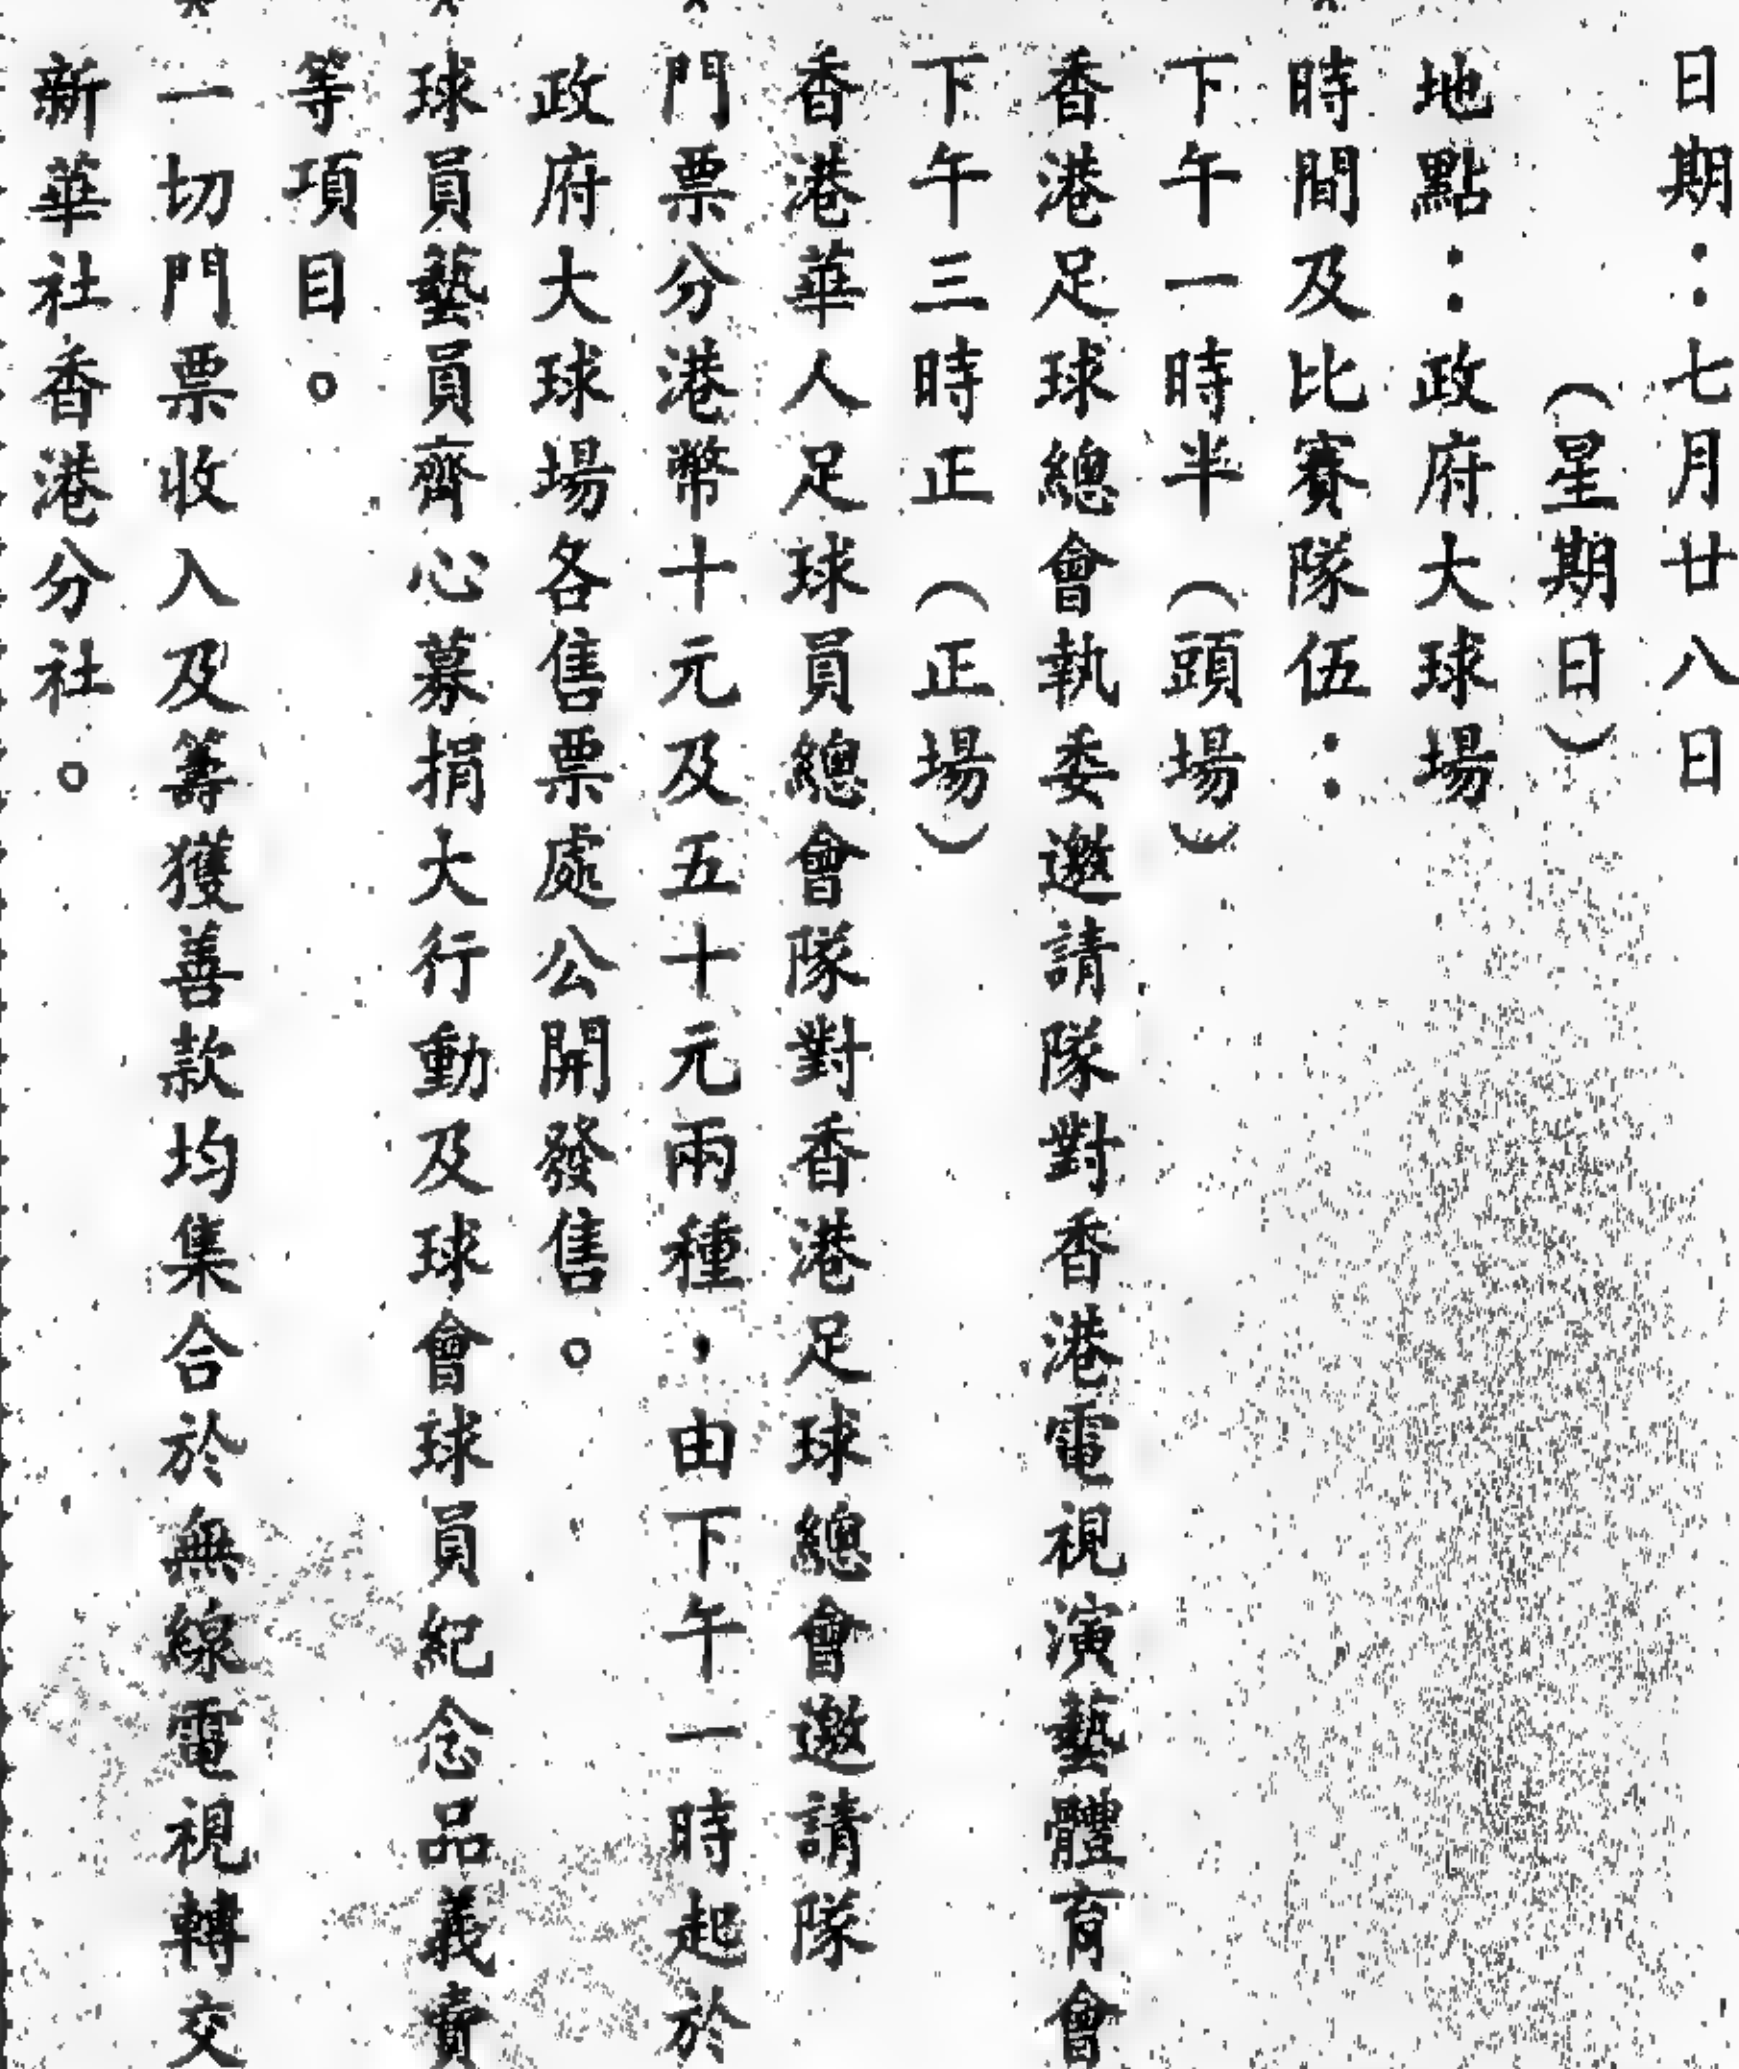 日期：七月廿八日
（星期日）
地點：政府大球場
時間及比賽隊伍：
下午一時半（頭場）
香港足球總會執委邀請隊對香港電視演藝體育會
下午三時正（正場）
香港華人足球員總會隊對香港足球總會邀請隊
門票分港幣十元及五十元兩種，由下午一時起於
政府大球場各售票處公開發售。
球員藝員齊心募捐大行動及球會球員紀念品義賣
等項目。
一切門票收入及籌獲善款均集合於無線電視轉交
新華社香港分社。